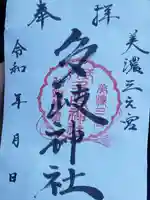 奉拝
美濃三元宮
多岐神社
令和 年 月 日